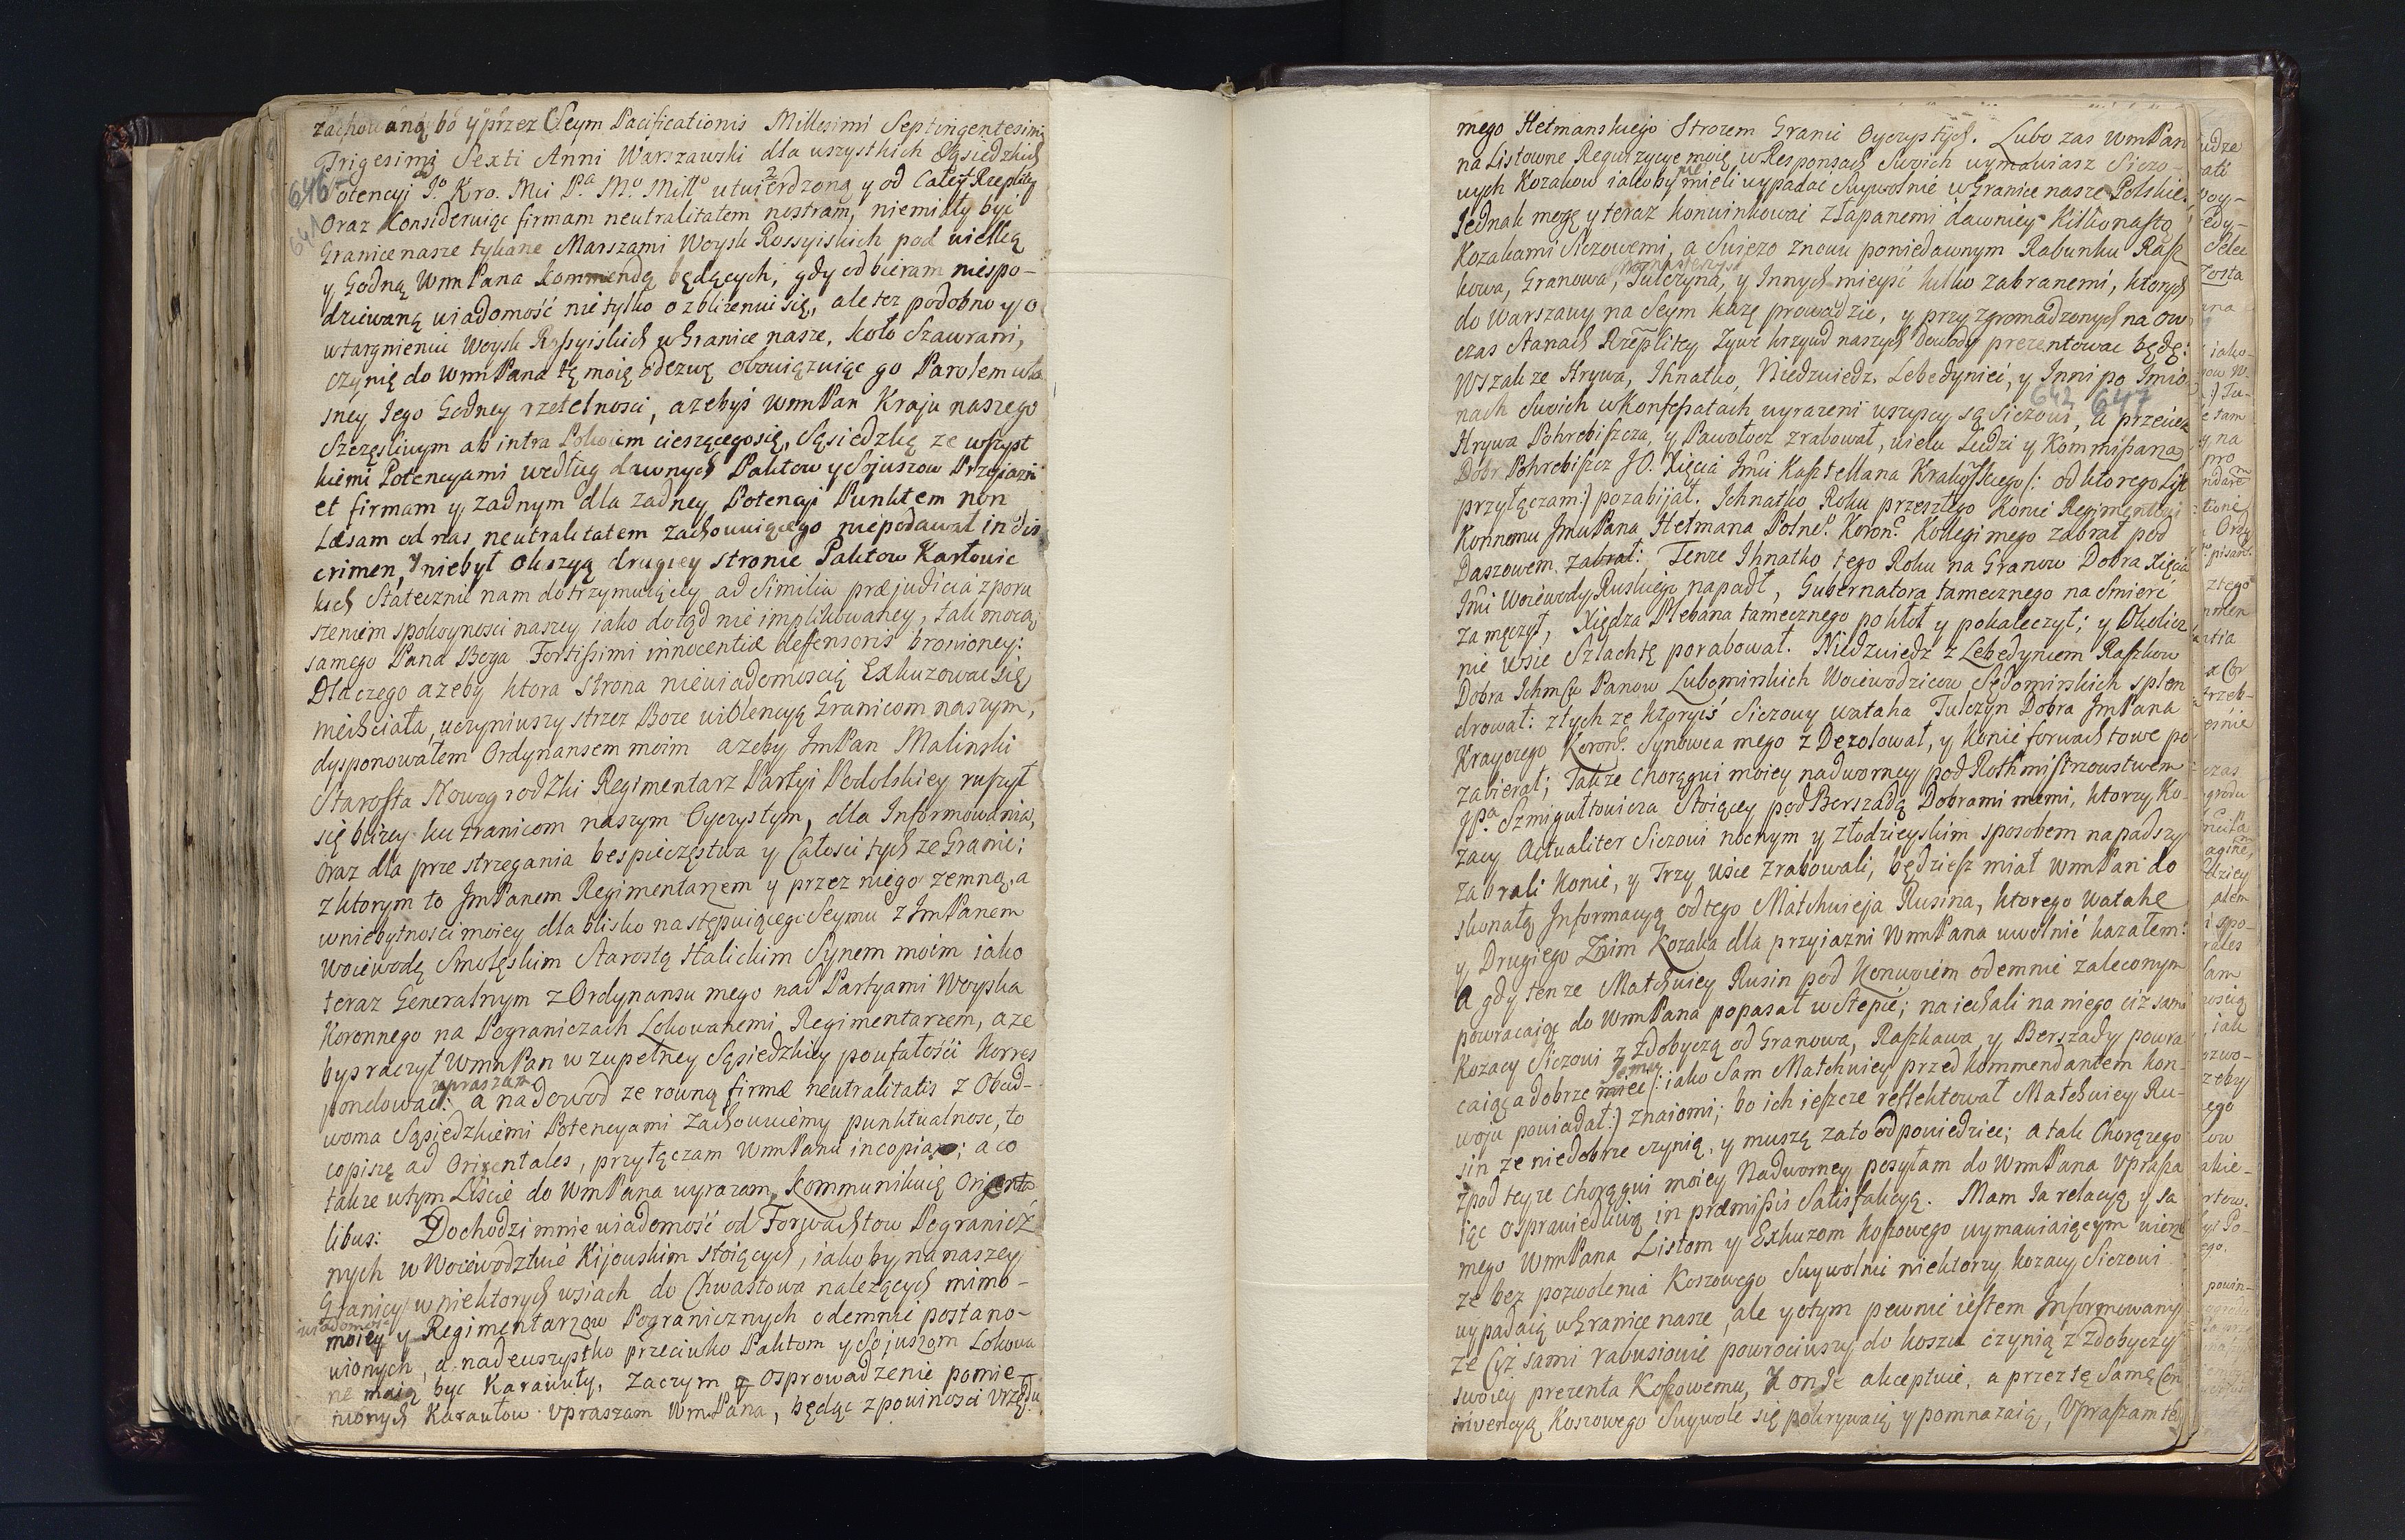 zachowaną bo y przez Seym Pacificationis Millesimi Septingentesimi
Trigesimi Sexti Anni Warszawski dla wszystkich Sąsiedzkich
646
Potencyi Jo. Kro. Mci Pa. Mo. Miłło utwierdzoną y od Całey Rzeplitey
Oraz Konsideruiąc firmam neutralitatem nostram, niemiały być
641
Granice nasze tykane Marszami Woysk Rossyiskich pod wielką
y Godną WmPana Kommendą będących, gdy odbieram niespo-
dziewaną wiadomość nie tylko o zbliżeniu się, ale tez podobno y o
wtargnieniu Woysk Rossyiskich w Granice nasze, koło Szawrani,
czynię do WmPana tę moię odezwę obowiązuiąc go Parolem wła
sney Jego Godney rzetelnosci, azebyś WmPan Kraju naszego
Szczęsliwym ab intra Pokoiem cieszącego się, Sąsiedzką ze wszyst
kiemi Potencyami według dawnych Paktow y Sojuszow Przyiazń
et firmam y zadnym dla zadney Potencyi Punktem non
Læsam od nas neutralitatem zachowuiącego niepodawał in dis
crimen, y niebył Okazyą drugiey stronie Paktow Karłowic
kich Statecznie nam dotrzymuiącey ad Similia præjudicia z poru
szeniem spokoynosci naszey iako dotąd nie implikowaney, tak mocą
samego Pana Boga Fortissimi innocentiæ deffensoris bronioney:
Dlaczego azeby ktora Strona niewiadomoscią Exkuzować się
niechciała, uczyniwszy strzez Boze wiolencyą Granicom naszym,
dysponowałem Ordynansem moim azeby JmPan Malinski
Starosta Nowogrodzki Regimentarz Partyi Podolskiey ruszył
się blizey ku Granicom naszym Oyczystym, dla Informowania,
oraz dla prze strzegania bespieczęstwa y Całosci tych ze Granic;
z ktorym to JmPanem Regimentarzem y przez niego zemną, a
w niebytnosci moiey dla blisko następuiącego Seymu z JmPanem
Woiewodą Smoleńskim Starostą Halickim Synem moim iako
teraz Generalnym z Ordynansu mego nad Partyami Woyska
Koronnego na Pograniczach Lokowanemi Regimentarzem, aze
byś raczył WmPan w zupełney Sąsiedzkiey poufałości Korres
upraszam
pondować: a na dowod ze rowną firmæ neutralitatis z Obud-
woma Sąsiedzkiemi Potencyami zachowuiemy punktualnosc, to
co piszę ad Orientales, przyłączam WmPanu in copia; a co
takze w tym Liście do WmPana wyrazam, Kommunikuię Orienta
libus: Dochodzi mnie wiadomość od Forwachtow Pogranicz
nych w Woiewodztwie Kijowskim stoiących, iakoby na naszey
Granicy w niektorych wsiach do Chwastowa nalezących mimo-
wiadomość
moiey y Regimentarzow Pogranicznych odemnie postano-
wionych, a nadewszystko przeciwko Paktom y Sojuszom Lokowa
ne maią byc Karauły. Zaczym o Osprowadzenie pomie-
nionych Karaułow upraszam WmPana, będąc z powinosci Urzędu
mego Hetmanskiego Strozem Granic Oyczystych. Lubo zas WmPan
na Listowne Requizycye moie, w Responsach Swoich wymawiasz Siczo-
wych Kozakow iakoby nie mieli wypadać Swywolnie w Granice nasze Polskie,
Jednak mogę y teraz konwinkować złapanemi dawniey Kilkonasto
Kozakami Siczowemi, a Swiezo znowu poniedawnym Rabunku Rasz
kowa, Granowa, Tulczyna, y Innych mieysc kilko zabranemi, ktorych
do Warszawy na Seym kazę prowadzić, y przy zgromadzonych na ow
czas Stanach Rzeplitey Zywe krzywd naszych Dowody prezentowac będę:
Wszak ze Hrywa, Ihnatko, Niedzwiedz, Lebedyniec, y Inni po Imio
642 647
nach Swoich w Konfessatach wyrazeni wszyscy są Siczowi, a przecież
Hrywa Pohrebiszcza, y Pawołocz zrabował, wielu Ludzi y Kommissarza
Dobr Pohrebiszcz JO. Xięcia Jmci Kasztellana Krakowskiego /: od ktorego List
przyłączam:/ pozabijał. Ihnatko Roku przeszłego Konie Regimentowi
Konnemu JmPana Hetmana Polne. Koronc. Kollegi mego zabrał pod
Daszowem zabrał: Tenze Ihnatko tego Roku na Granow Dobra Xięcia
Jmci Woiewody Ruskiego napadł, Gubernatora tamecznego na Smierć
zamęczył, Xiędza Plebana tamecznego pokłoł y pokaleczył; y Okolicz
nie wsie Szlachtę porabował. Niedzwiedz z Lebedyncem Raszkow
Dobra Ichmciow Panow Lubomirskich Woiewodzicow Sędomirskich splon
drował: z tych ze ktoryiś Siczowy wataha Tulczyn Dobra JmPana
Krayczego Koronc. Synowca mego zDezolował, y konie forwachtowe po
zabierał; Takze Chorągwi moiey nadworney pod Rothmistrzowstwem
JPa. Szmigułtowicza Stoiącey pod Berszadą Dobrami memi, ktorzy Ko-
zacy Actualiter Siczowi nocnym y złodzieyskim sposobem napadszy
zabrali Konie, y Trzy Wsie zrabowali, będziesz miał WmPan do
skonałą Informacyą od tego Matchwieja Rusina, ktorego Watahę
y Drugiego Znim Kozaka dla przyiazni WmPana uwolnić kazałem:
A gdy tenze Matchwiey Rusin pod Konwoiem odemnie zaleconym
powracaiąc do WmPana popasał w Stepie; naiechali na niego ciz sami
Kozacy Siczowi z zdobyczą od Granowa, Raszkowa, y Berszady powra
Jemu
caiąc a dobrze /: iako Sam Matchwiey przed kommendantem kon-
woju powiadał:/ znaiomi; bo ich ieszcze reflektował Matchwiey Ru-
sin ze niedobrze czynią, y muszą zato odpowiedziec; a tak Chorązego
z pod teyze Chorągwi moiey Nadworney posyłam do WmPana upraszza
iąc o sprawiedliwą in præmissis Satisfakcyą. Mam Ja relacyą, y sa
mego WmPana Listom y Exkuzom Koszowego wymawiaiącym wierzę
ze bez pozwolenia Koszowego Swywolnie niektorzy kozacy Siczowi
wypadaią w Granice nasze, ale y o tym pewnie iestem Informowany
ze Ciż sami rabusiowie powrociwszy do koszu czynią z Zdobyczy
swoiey prezenta Koszowemu, y on Je akceptuie, a przez tę Samę Con
niwencyą Koszowego Swywole się pokrywaią y pomnazaią, Upraszam te